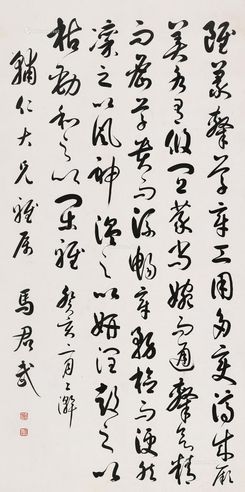 雖篆隸草章工用多變濟成厥
美各有攸宜篆尚婉而通隸欲精
而密草貴而流暢章務檢而便然
凜之以風神溫之以妍潤鼓之以
枯勁和之以閒雅 癸亥二月上澣
輔仁大兄雅屬 馬君武